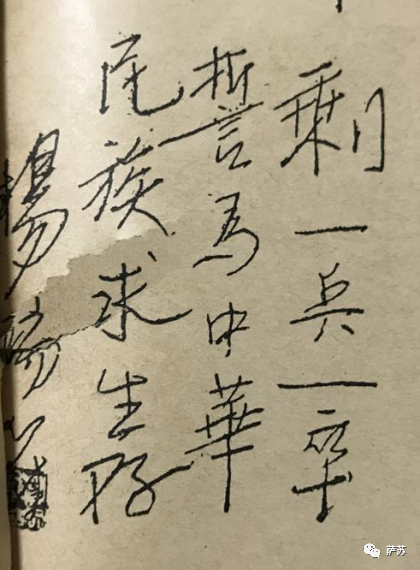 剩一兵一卒
誓為中華
民族求生存
楊瑞
萨苏